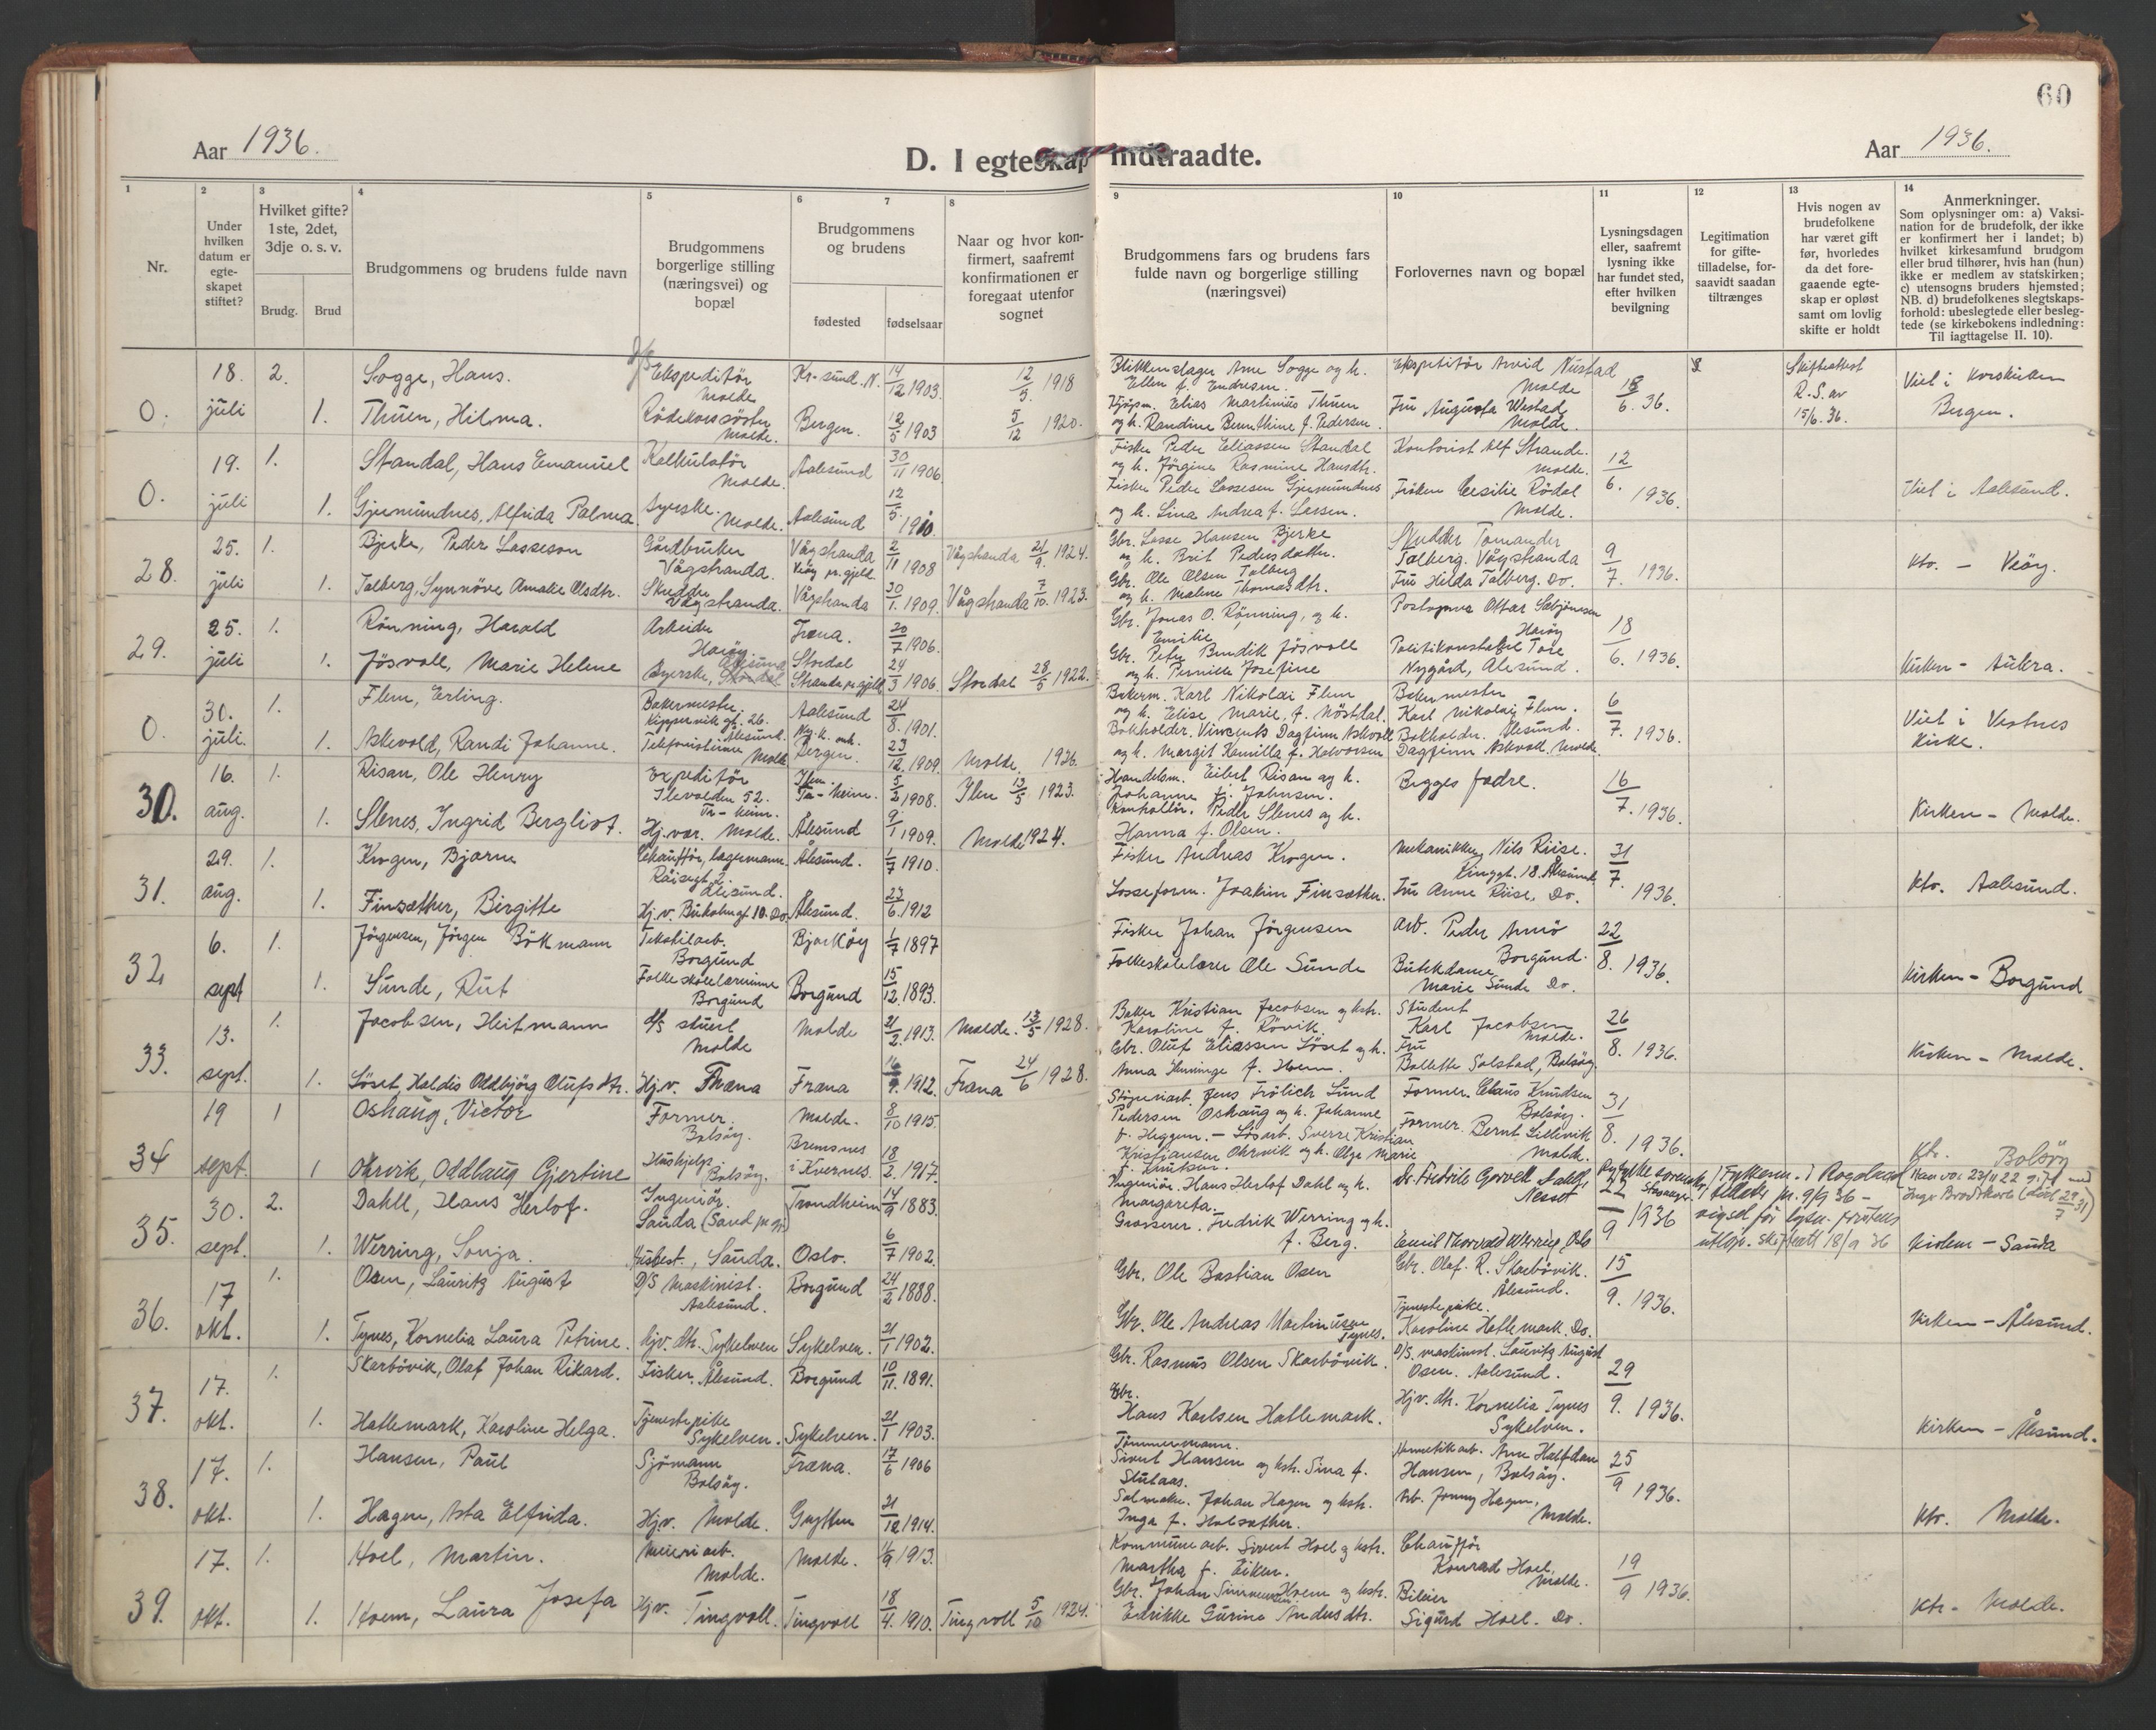 60
Aar 1936.
D. I egteskap indtraadte.
Aar 1936.
1 2 3 4 5 6 7 8 9 10 11 12 13 14
Nr.
Under hvilken datum er egte-skapet stiftet?
Hvilket gifte? 1ste, 2det, 3dje o. s. v.
Brudg. Brud
Brudgommens og brudens fulde navn
Brudgommens borgerlige stilling (næringsvei) og bopæl
Brudgommens og brudens
fødested fødselsaar
Naar og hvor kon-firmert, saafremt konfirmationen er foregaat utenfor sognet
Brudgommens fars og brudens fars fulde navn og borgerlige stilling (næringsvei)
Forlovernes navn og bopæl
Lysningsdagen eller, saafremt lysning ikke har fundet sted, efter hvilken bevilgning
Legitimation for gifte-tilladelse, for-saavidt saadan tiltrænges
Hvis nogen av brudefolkene har været gift før, hvorledes da det fore-gaaende egte-skap er opløst samt om lovlig skifte er holdt
Anmerkninger.
Som oplysninger om: a) Vaksi-nation for de brudefolk, der ikke er konfirmert her i landet; b) hvilket kirkesamfund brudgom eller brud tilhører, hvis han (hun) ikke er medlem av statskirken; c) utensogns bruders hjemsted; NB. d) brudefolkenes slegtskaps-forhold: ubeslegtede eller besleg-tede (se kirkebokens indledning: Til iagttagelse II. 10).
0. 18. juli 2. Sogge, Hans. Ekspeditør Molde Kr-sund. N. 14/12 1903. 12/5 1918 Blikkenslager Arne Sogge og h. Ellen f. Endresen. Ekspeditør Arvid Nustad Molde 18/6. 36. Skifteattest R.S. av 15/6. 36. Viet i Korskirken Bergen.
1. Thuen, Hilma. Rödekorssöster Molde. Bergen. 12/5 1903 5/12 1920. Kjöpm. Elias Martinius Thuen og h. Randine Bernthine f. Pedersen. Fru Augusta Westad Molde.
0. 19. juli 1. Standal, Hans Emanuel Kalkulatör Molde. Aalesund 30/11 1906. Fisker Peder Eliassen Standal og h. Jörgine Rasmine Hansdtr. Kontorist Alf Strande. Molde. 12/6. 1936. Viet i Aalesund.
1. Gjermundnes, Alfrida Palma. Syerske. Molde. Aalesund 12/5. 1910. Fisker Peder Lassesen Gjermundnes og h. Lina Andrea f. Larsen. Fröken Cesilie Rödal Molde.
28. 25. juli 1. Bjerke, Peder Lasseson Gårdbruker Vågstranda. Vågstranda Veöy pr.gjeld. 2/11 1908 Vågstranda 21/9. 1924. Gbr. Lasse Hansen Bjerke og h. Brit Pedersdatter. Skredder Tomander Talberg. Vågstranda 9/7. 1936. Kto. - Veöy.
1. Talberg, Synnöve Amalie Olsdtr. Skredder Vågstranda. Vågstranda 30/1. 1909. Vågstranda 7/10. 1923. Gbr. Ole Olsen Talberg og h. Malene Thomasdtr. Fru Hilda Talberg. Do.
29. 25. juli 1. Rönning, Harald Arbeider Haröy. Fræna. 20/7 1906. Gbr. Jonas O. Rönning, og h. Emilie Postopner Ottar Sæbjörnsen Haröy 18/6. 1936. Kirken - Aukra.
1. Jösvoll, Marie Helene Syerske, Ålesund Stordal Stranda pr.gjeld 24/3 1906. Stordal 28/5 1922. Gbr. Peter Bendik Jösvoll og h. Pernille Josefine Politikonstabel Tore Nygård, Ålesund.
0. 30. juli. 1. Flem, Erling. Bakermester. Kippervik gt. 26. Ålesund. Aalesund 24/8. 1901. Bakerm. Karl Nikolai Flem og h. Elise Marie, f. Nöstdal. Bakermester Karl Nikolai Flem. Ålesund. 6/7. 1936. Viet i Vestnes Kirke.
1. Askevold, Randi Johanne. Telefonistinne Molde Bergen. 23/12. 1909. Molde. 1926. Bokholder. Vincents Dagfinn Askvoll og h. Margit Kamilla f. Halvorsen Bokholder. Dagfinn Askvoll. Molde
30. 16. aug. 1. Risan, Ole Henry Expeditör Ilevolden 52. Tr-heim. Ilen. Tr-heim. 5/2 1908. Ilen 13/5 1923. Handelsm. Eilert Risan og h. Johanne f. Johnsen. Begges fædre. 16/7. 1936. Kirken - Molde.
1. Slenes, Ingrid Bergliot. Hj.vær. Molde. Ålesund 9/1 1909. Molde 1924. Kontrollör. Peder Slenes og h. Hanna f. Olsen.
31. 29. aug. 1. Krogen, Bjarne Chaufför, lagermann. Ålesund. Ålesund. 1/7 1910. Fisker Andreas Krogen. Mekanikker Nils Riise. Ringgt. 18. Ålesund. 31/7. 1936. Kto. Aalesund.
1. Finsæther, Birgitte Hj. v. Bukolmgt. 10. Do. Ålesund. 23/6. 1912 Losseform. Joakim Finsæther. Fru Anne Riise. Do.
32 6. sept 1. Jörgensen, Jörgen Bökmann Tekstilarb. Borgund Bjarköy 1/7 1897 Fisker Johan Jörgensen Arb. Peder Arnö Borgund. 22/8. 1936. Kirken - Borgund
1. Sunde, Rut Folkeskolelærerinne Borgund Borgund 15/12. 1893. Folkeskolelærer Ole Sunde Butikdame Marie Sunde Do.
33. 13. sept. 1. Jacobsen, Heitmann d/s stuert Molde Molde 21/2. 1913. Molde. 13/5 1928. Baker Kristian Jacobsen og hstr. Karoline f. Rövik. Student Karl Jacobsen Molde. 26/8. 1936. Kirken - Molde.
1. Söset, Haldis Oldbjörg Olufsdtr. Hj.v. Fræna Fræna 16/9. 1912. Fræna 24/6 1928. Gbr. Oluf Eliassen Söset og h. Anna Henninge f. Hoem. Fru Ballette Solstad, Bolsöy.
34 19 sept. 1 Oshaug, Victor Former. Bolsöy. Molde. 8/10 1915. Stöperiarb. Jens Frölich Lund Pedersen Oshaug og h. Johanne f. Heggem. Former. Claus Knudsen Bolsöy. 31/8. 1936. Ktr. Bolsöy
1 Ohrvik, Oddbaug Gjertine Hushjelp Bolsöy. Bremsnes i Kvernes. 18/2. 1917. Lösarb. Sverre Kristian Kristiansen Ohrvik og h. Olga Marie f. Knutsen. Former. Bernt Lillevik Molde.
35. 30. sept. 2. Dahll, Hans Herlof. Ingeniör Sauda Trondheim 14/9 1883. Ingeniör. Hans Herlof Dahl og h. Margareta. Dr. Fredrik Gorvell Dahl, 22/9 1936 Kirken - Sauda
1. Werring, Sonja. Husbest., Sauda. Oslo. 6/7 1902. Grosserer. Fredrik Werring og h. f. Berg. Emil Thorvald Werring, Oslo
36. 17 okt. 1. Osen, Lauritz August D/S Maskinist. Aalesund. Borgund 24/2 1888. Gbr. Ole Bastian Osen Gbr. Olaf. R. Skarbövik. Ålesund. 15/9. 1936. Kirken - Ålesund.
1. Tynes, Kornelia Laura Petrine. Hjv. dtr. Sykelven Sykelven. 21/1 1902. Gbr. Ole Andreas Martinusen Tynes. Tjenestepike. Karoline Hatlemark. Do.
37. 17. okt. 1. Skarbövik, Olaf Johan Rikard. Fisker. Ålesund. Borgund 10/11. 1891. Gbr. Rasmus Olsen Skarbövik. D/S. maskinist. Lauritz August Osen. Aalesund. 29/9. 1936. Kirken - Ålesund.
1. Hatlemark, Karoline Helga. Tjenestepike Sykelven. Sykelven. 21/1 1903. Gbr. Hans Karlsen Hatlemark. Hjv. dtr. Kornelia Tynes Sykelven.
38. 17. okt. 1. Hansen, Paul Sjömann Bolsöy. Fræna. 17/6 1906 Tömmermann. Sivert Hansen og hstr. Sina f. Stutaas. Hermetikarb. Arne Halfdan Hansen, Bolsöy. 25/9 1936. Ktr. Molde.
1. Hagen, Asta Elfrida. Hj.v. Molde. Grytten 21/12 1914. Salmaker. Johan Hagen og hstr. Inga f. Halsæther. Arb. Jonny Hagen, Molde.
39. 17. okt. 1. Hoel, Martin. Meieriarb. Molde. Molde. 11/9 1913. Kommunearb. Sivert Hoel og hstr. Martha f. Eiken. Chaufför Konrad Hoel. Molde. 19/9 1936. Ktr - Molde.
1. Hoem, Laura Josefa Hj.v. Tingvoll. Tingvoll 18/4. 1910. Tingvoll 5/10 1924. Gbr. Johan Hoem og hstr. Edrikke Gurine Andersdtr. Bileier Sigurd Hoel. Do.